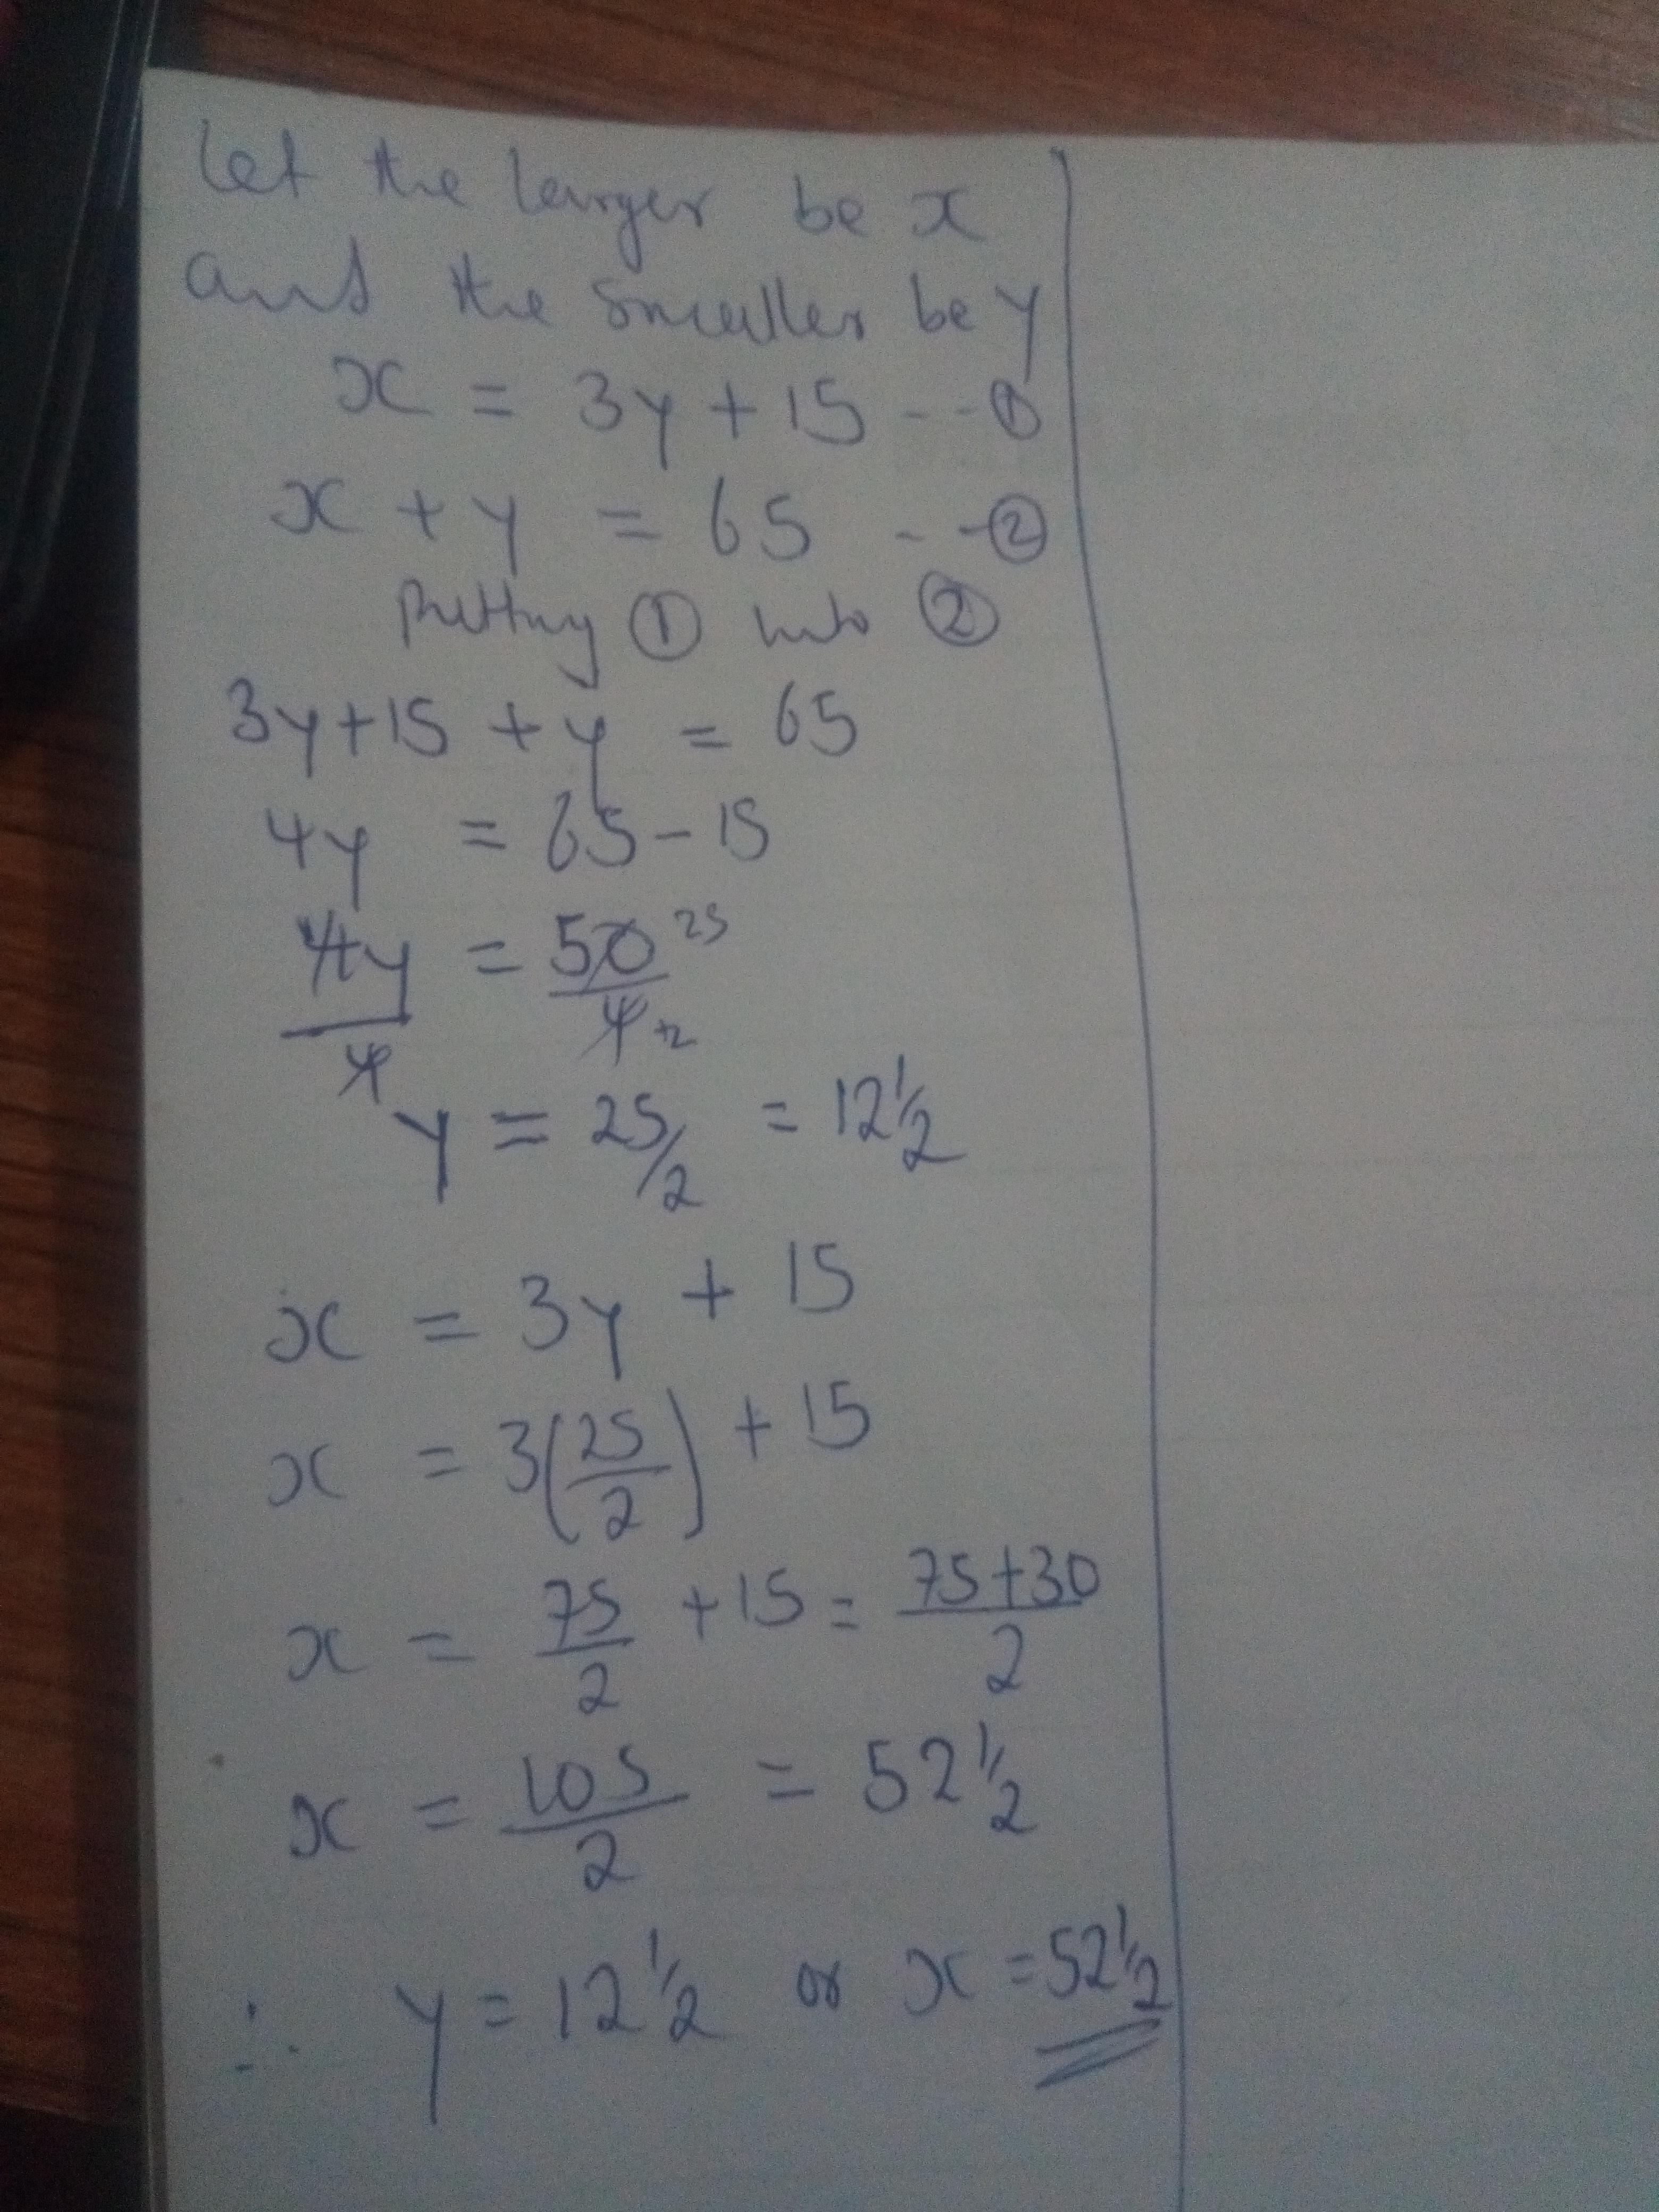 Let the larger be x
and the smaller be y
x = 3y + 15 --①
x + y = 65 --②
Putting ① into ②
3y+15 + y = 65
4y = 65 - 15
4y/4 = 50/4 25 2
y = 25/2 = 12 1/2
x = 3y + 15
x = 3(25/2) + 15
x = 75/2 + 15 = 75+30/2
x = 105/2 = 52 1/2
∴ y = 12 1/2 or x = 52 1/2